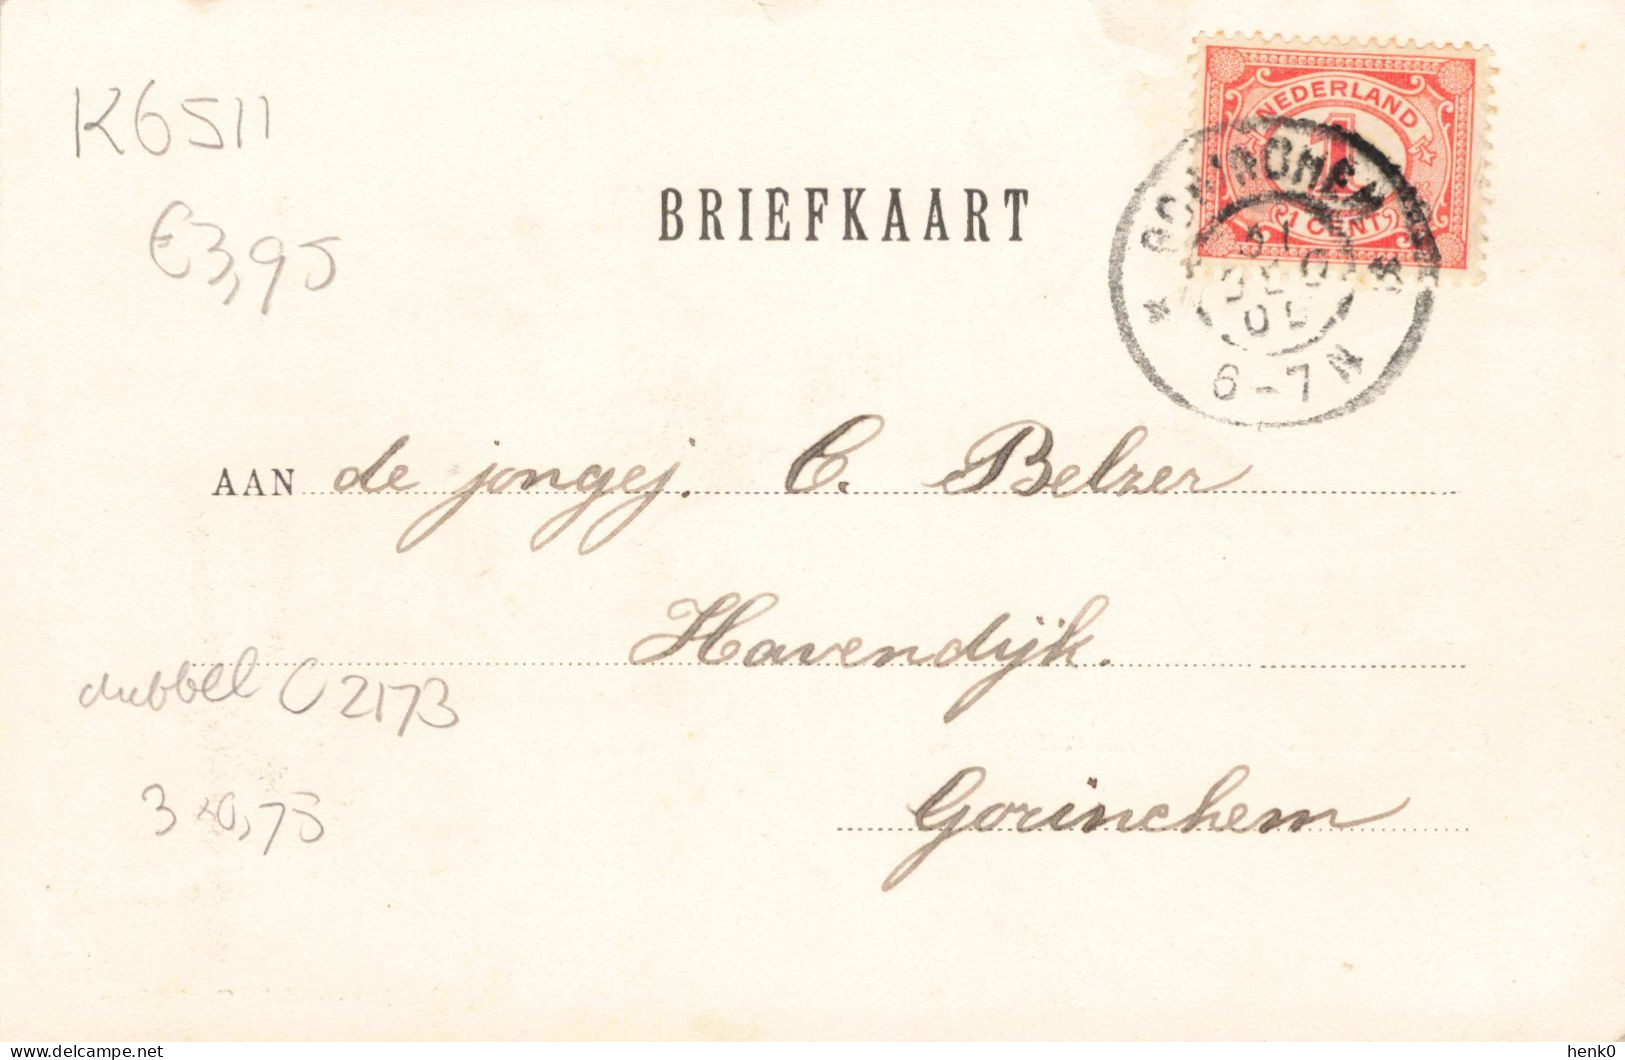 K6511
€3,95
BRIEFKAART
NEDERLAND
1
1 CENT
GORINCHEM
31
DEC
6-7 N
AAN de jongej. C. Belzer
Havendijk.
Gorinchem
dubbel C 2173
delcampe.net
henk0